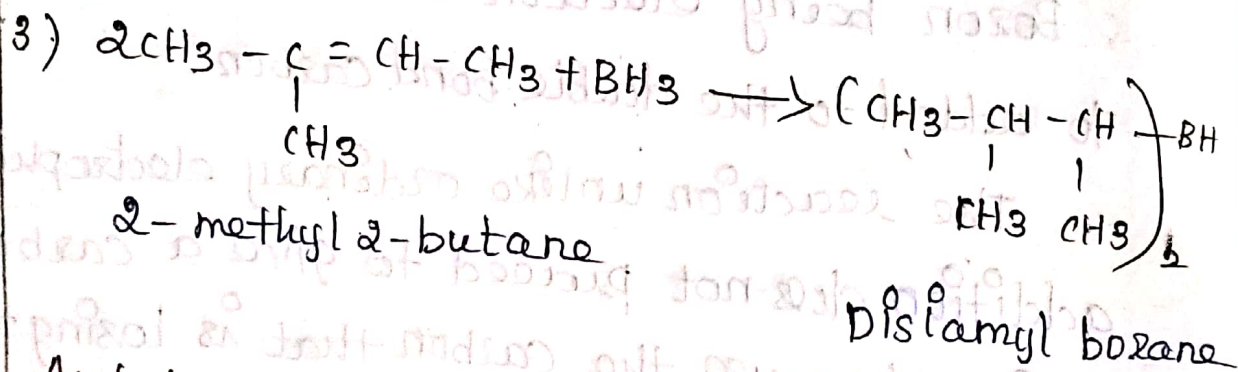 3) 2CH3 - C = CH - CH3 + BH3 ⟶ (CH3 - CH - CH)2 - BH
CH3 CH3 CH3
2- methyl 2-butane
Disiamyl borane